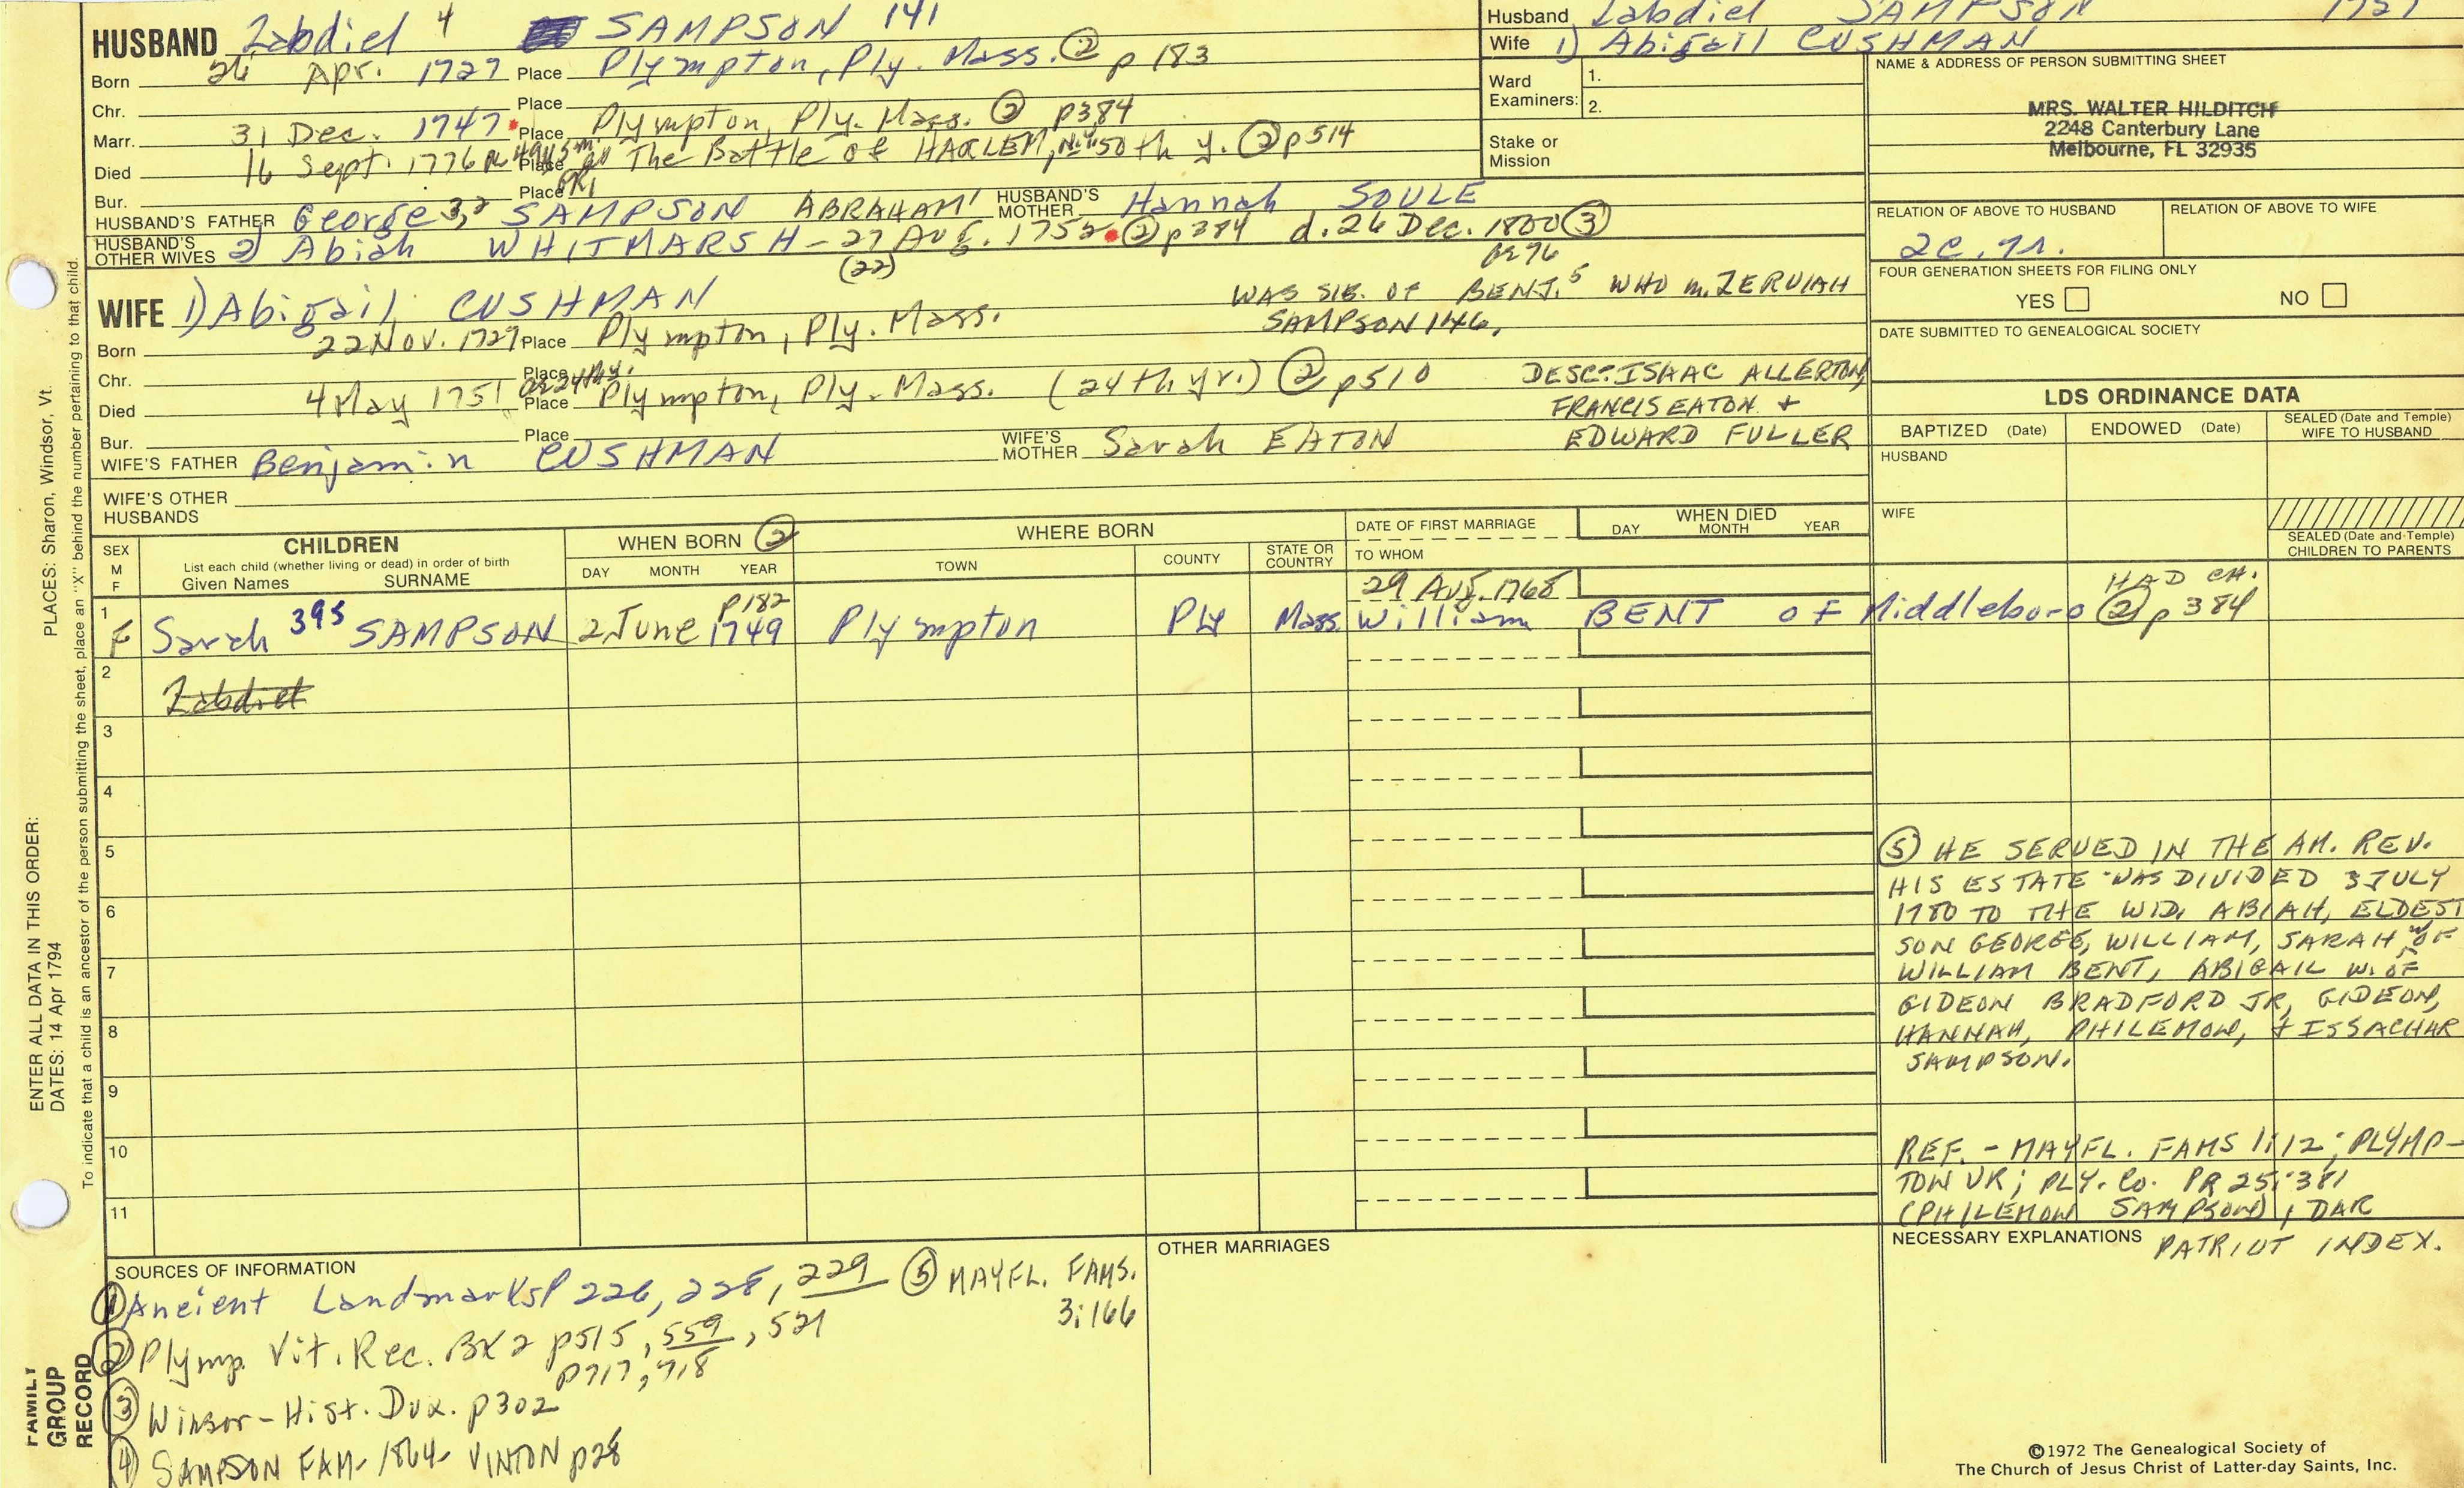 HUSBAND Zabdiel 4 SAMPSON 141
Born 26 Apr. 1727 Place Plympton, Ply. Mass. ② p 183
Chr. Place
Marr. 31 Dec. 1747 Place Plympton, Ply. Mass. ② p384
Died 16 Sept. 1776 Place The Battle of HARLEM, N.Y. 50th y. ② p514
Bur. Place
HUSBAND'S FATHER George 3, 2 SAMPSON ABRAHAM 1 HUSBAND'S MOTHER Hannah SOULE
HUSBAND'S OTHER WIVES 2) Abiah WHITMARSH - 27 AUG. 1752 ② p384 d. 26 Dec. 1800 ③
(22)
WIFE 1) Abigail CUSHMAN
WAS SIB. OF BENJ. 5 WHO m. ZERUIAH
SAMPSON 146.
Born 22 Nov. 1727 Place Plympton, Ply. Mass.
Chr. Place
Died 4 May 1751 Place Plympton, Ply. Mass. (24th yr.) ② p510
DESC: ISAAC ALLERTON,
FRANCIS EATON +
EDWARD FULLER
Bur. Place
WIFE'S FATHER Benjamin CUSHMAN WIFE'S MOTHER Sarah EATON
WIFE'S OTHER HUSBANDS
Husband Zabdiel SAMPSON 1727
Wife 1) Abigail CUSHMAN
Ward Examiners: 1.
2.
Stake or Mission
NAME & ADDRESS OF PERSON SUBMITTING SHEET
MRS. WALTER HILDITCH
2248 Canterbury Lane
Melbourne, FL 32935
RELATION OF ABOVE TO HUSBAND RELATION OF ABOVE TO WIFE
FOUR GENERATION SHEETS FOR FILING ONLY
YES NO
DATE SUBMITTED TO GENEALOGICAL SOCIETY
LDS ORDINANCE DATA
BAPTIZED (Date) ENDOWED (Date) SEALED (Date and Temple) WIFE TO HUSBAND
HUSBAND
WIFE
SEALED (Date and Temple) CHILDREN TO PARENTS
SEX M F
CHILDREN
List each child (whether living or dead) in order of birth
Given Names SURNAME
WHEN BORN ②
DAY MONTH YEAR
WHERE BORN
TOWN COUNTY STATE OR COUNTRY
DATE OF FIRST MARRIAGE
TO WHOM
WHEN DIED
DAY MONTH YEAR
p182 29 Aug. 1768 HAD CH.
1 F Sarah 395 SAMPSON 2 June 1749 Plympton Ply Mass. William BENT of Middleboro ② p 384
2 Zabdiel
3
4
5
6
7
8
9
10
11
⑤ HE SERVED IN THE AM. REV.
HIS ESTATE WAS DIVIDED 3 JULY
1780 TO THE WID. ABIAH, ELDEST
SON GEORGE, WILLIAM, SARAH w OF
WILLIAM BENT, ABIGAIL W. OF
GIDEON BRADFORD JR, GIDEON,
HANNAH, PHILEMON, + ISSACHAR
SAMPSON.
REF. - MAYFL. FAMS 1:12; PLYMP-
TON VR; PLY. Co. PR 25:381
(PHILEMON SAMPSON), DAR
PATRIOT INDEX.
NECESSARY EXPLANATIONS
SOURCES OF INFORMATION
① Ancient Landmarks P 226, 228, 229
② Plymp. Vit. Rec. BK 2 p515, 559, 521
p717, 718
③ Winsor - Hist. Dux. p302
④ SAMPSON FAM - 1864 - VINTON p28
⑤ MAYFL. FAMS.
3:166
OTHER MARRIAGES
©1972 The Genealogical Society of
The Church of Jesus Christ of Latter-day Saints, Inc.
ENTER ALL DATA IN THIS ORDER:
DATES: 14 Apr 1794
PLACES: Sharon, Windsor, Vt.
To indicate that a child is an ancestor of the person submitting the sheet, place an "X" behind the number pertaining to that child.
FAMILY
GROUP
RECORD